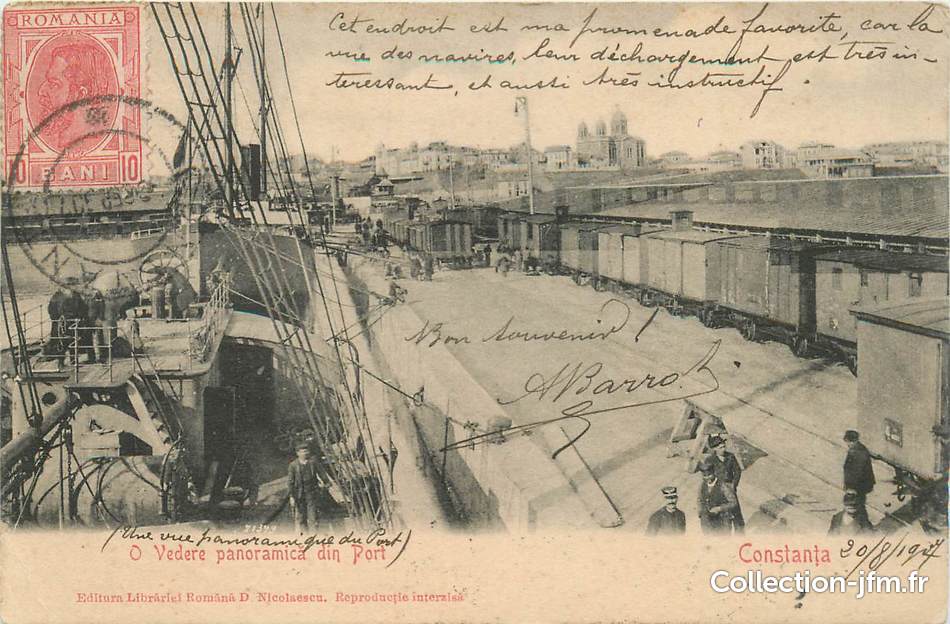 ROMANIA
10 BANI 10
Cet endroit est ma promenade favorite, car la
vue des navires, leur déchargement est très in-
teressant, et aussi très instructif.
Bon souvenir!
ABarro
(Une vue panoramique du Port)
O Vedere panoramică din Port
Constanţa
20/8/19
Editura Librăriei Română D. Nicolaescu. Reproducţie interzisă
Collection-jfm.fr